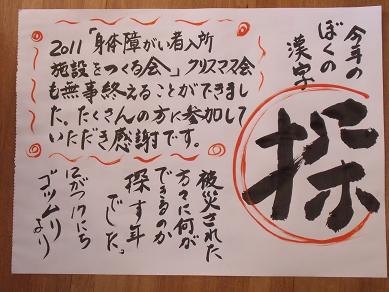 今年の
ぼくの
漢字
探
2011「身体障がい者入所
施設をつくる会」クリスマス会
も無事終えることができまし
た。たくさんの方に参加して
いただき感謝です。
被災された
方々に何が
できるのか
探す年
でした。
12がつ17にち
ゴツムリ
より